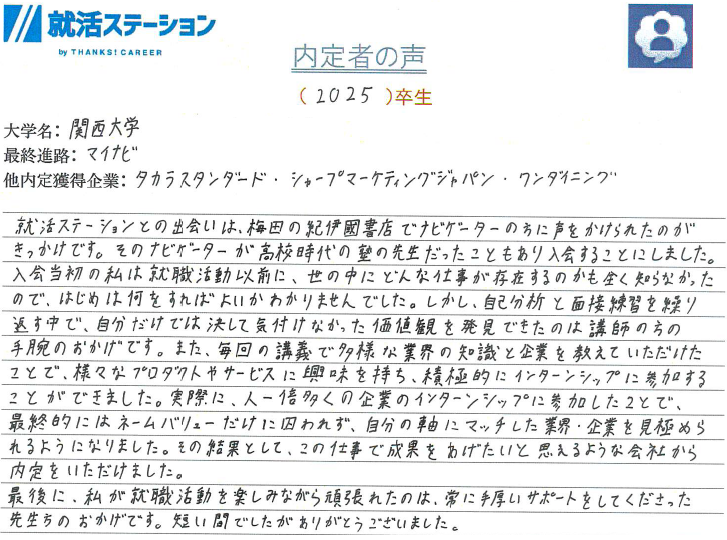 就活ステーション
by THANKS! CAREER
内定者の声
( 2025 )卒生
大学名: 関西大学
最終進路: マイナビ
他内定獲得企業: タカラスタンダード・シャープマーケティングジャパン・ワンダイニング
就活ステーションとの出会いは、梅田の紀伊國書店でナビゲーターの方に声をかけられたのが
きっかけです。そのナビゲーターが高校時代の塾の先生だったこともあり入会することにしました。
入会当初の私は就職活動以前に、世の中にどんな仕事が存在するのかも全く知らなかった
ので、はじめは何をすればよいかわかりませんでした。しかし、自己分析と面接練習を繰り
返す中で、自分だけでは決して気付けなかった価値観を発見できたのは講師の方の
手腕のおかげです。また、毎回の講義で多様な業界の知識と企業を教えていただけた
ことで、様々なプロダクトやサービスに興味を持ち、積極的にインターンシップに参加する
ことができました。実際に、人一倍多くの企業のインターンシップに参加したことで、
最終的にはネームバリューだけに囚われず、自分の軸にマッチした業界・企業を見極めら
れるようになりました。その結果として、この仕事で成果をあげたいと思えるような会社から
内定をいただけました。
最後に、私が就職活動を楽しみながら頑張れたのは、常に手厚いサポートをしてくださった
先生方のおかげです。短い間でしたがありがとうございました。